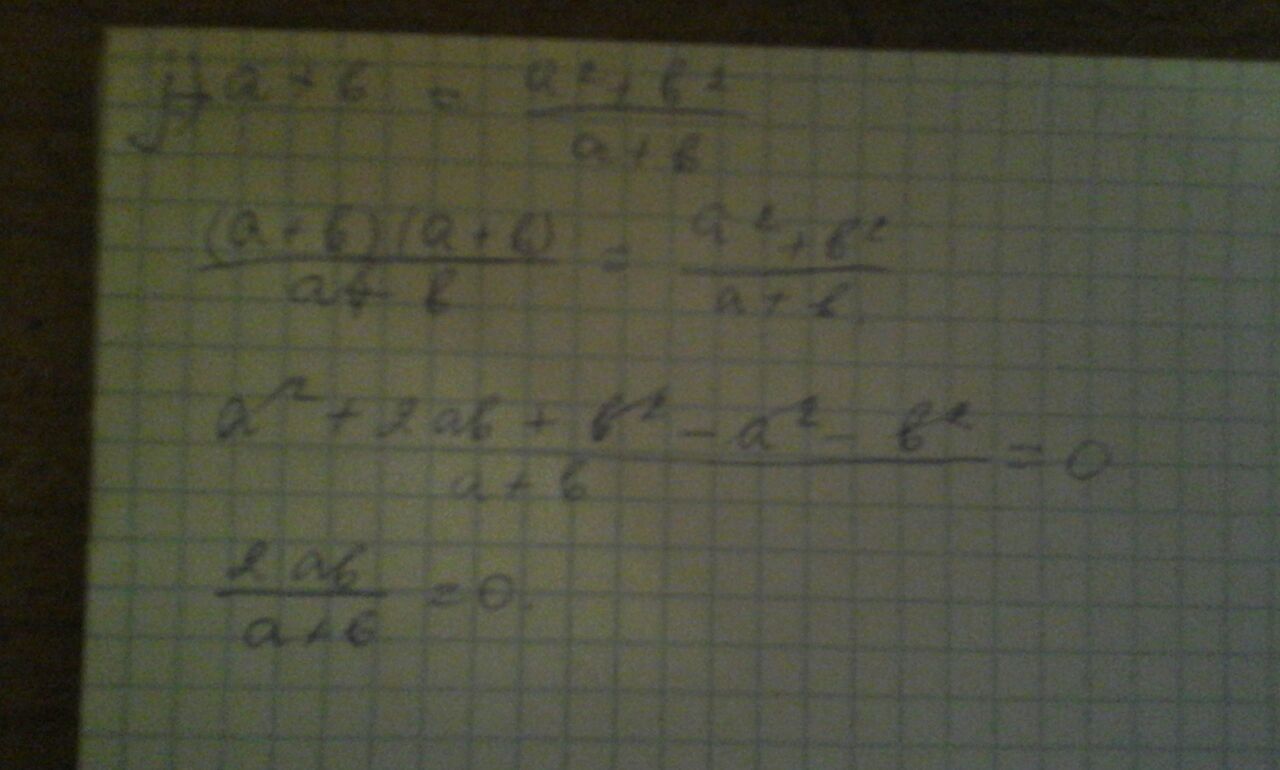 a + b = (a² + b²)/(a + b)
((a + b)(a + b))/(a + b) = (a² + b²)/(a + b)
(a² + 2ab + b² - a² - b²)/(a + b) = 0
2ab/(a + b) = 0.